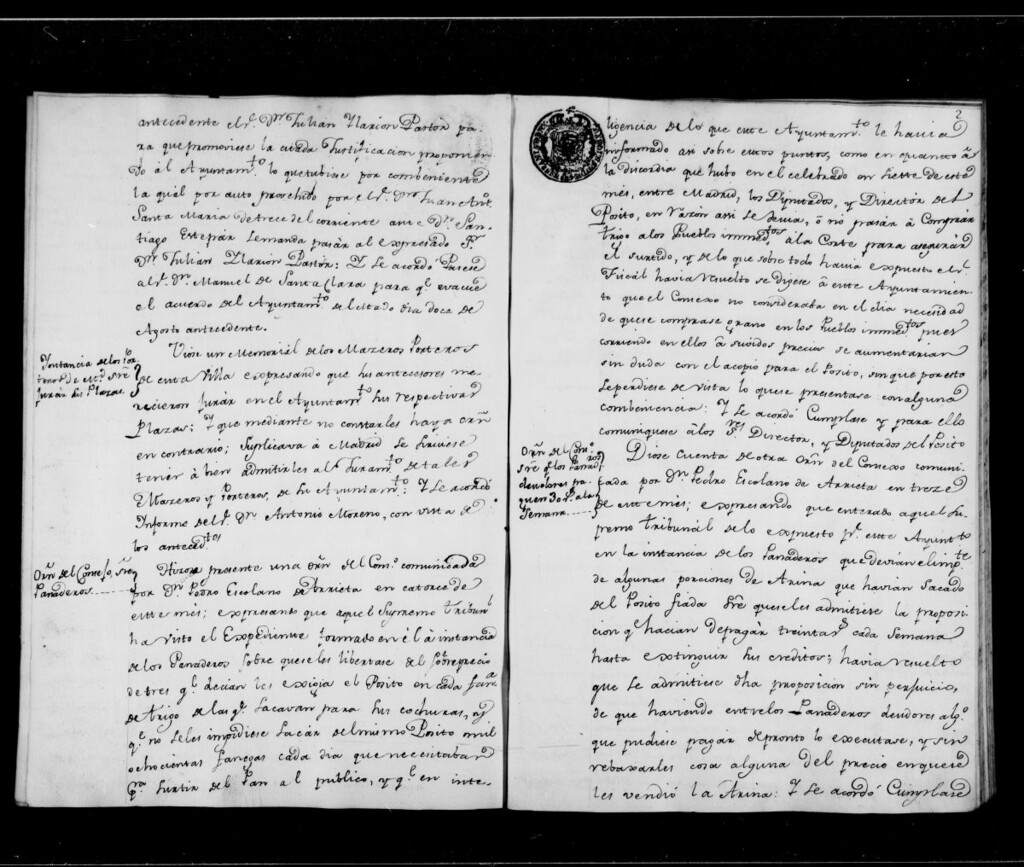 antecedente el S.r D.n Julian Ylarion Pastor pa-
ra que promoviese la citada Justificacion proponien-
do al Ayuntam.to lo que tubiese por combeniente
la qual por auto provehido por el S.r D.n Juan Ant.o
Santa Maria de trece del corriente ante D.n San-
tiago Estepár se manda pasár al expresado S.r
D.n Julian Ylarion Pastor: Y se acordó Pasese
al S.r D.n Manuel de Santa Clara para q.e evacue
el acuerdo del Ayuntam.to del citado dia doce de
Agosto antecedente.
Ynstancia de los Por-
teros de M.d sre
jurár sus Plazas.
Viose un Memorial de los Mazeros Porteros
de esta Villa expresando que sus antecesores me-
recieron jurár en el Ayuntam.to sus respectivas
Plazas; Y que mediante no constarles haya orn
en contrario; Suplicava á Madrid se sirviese
tenér á bien admitirles al Juram.to de tales
Mazeros y Porteros, de su Ayuntam.to: Y se acordó
Informe del S.r D.n Antonio Moreno, con vista de
los anteced.tes
Orn del Consejo, sre
Panaderos.
Hizose presente una orn del Con.o comunicada
por D.n Pedro Escolano de Arrieta en catorce de
este mes; expresando que aquel Supremo Tribunal
ha visto el Expediente formado en él á instancia
de los Panaderos sobre que se les libertase del sobreprecio
de tres q.e decian les exigia el Posito en cada fan.a
de trigo de las q.e sacavan para sus cochuras, y
q.e no se les impidiese sacár del mismo Posito mil
ochocientas fanegas cada dia que necesitaban
p.a surtir del Pan al publico, y q.e en inte-
2
ligencia de lo que este Ayuntam.to le havia
informado asi sobre estos puntos, como en quanto á
la discordia que hubo en el celebrado en siette de este
mes, entre Madrid, los Diputados, y Director del
Posito, en razón asi se devia, ó no pasár á Comprar
trigo a los Pueblos immed.tos á la Corte para asegurár
el surtido, y de lo que sobre todo havia expuesto el S.r
Fiscál havia resuelto se dijese á este Ayuntamien-
to que el Consexo no consideraba en el dia necesidad
de que se comprase grano en los Pueblos immed.tos pues
corriendo en ellos á subidos precios se aumentarian
sin duda con el acopio para el Posito, sin que por esto
se perdiese de vista lo que se presentase con alguna
combeniencia: Y se acordó Cumplase y para ello
comuniquese á los S.res Director, y Diputados del Posito
Orn del Con.o
sre q.e los Panad.os
deudores pa-
guen 30 r.s a la
Semana
Diose Cuenta de otra Orn del Consexo comuni-
cada por D.n Pedro Escolano de Arrieta en treze
de este mes; expresando que enterado aquel Su-
premo tribunal de lo expuesto p.r este Ayunt.to
en la instancia de los Panaderos que devian el imp.te
de algunas porciones de Arina que havian Sacado
del Posito fiada sre que se les admitiese la proposi-
cion q.e hacian de pagár treinta r.s cada Semana
hasta extinguir sus creditos; havia resuelto
que se admitiese dha proposicion sin perjuicio,
de que haviendo entre los Panaderos deudores alg.o
que pudiese pagár de pronto lo executase, y sin
rebaxarles cosa alguna del precio en que se
les vendió la Arina: Y se acordó Cumplase